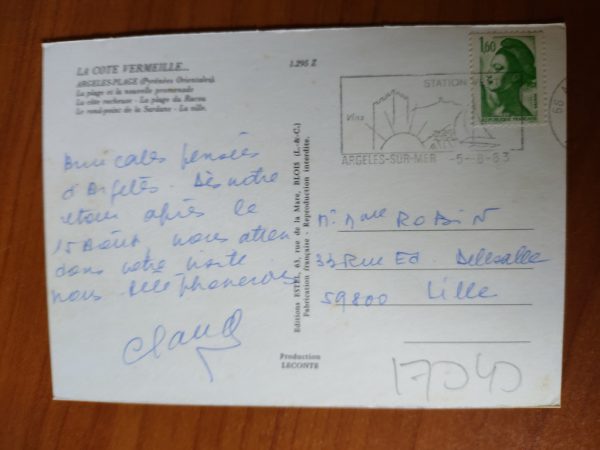 LA COTE VERMEILLE...
ARGELES-PLAGE (Pyrénées Orientales)
La plage et la nouvelle promenade
La côte rocheuse - La plage du Racou
Le rond-point de la Sardane - La ville.
1.295 Z
Amicales pensées
d'Argelès. Dès notre
retour après le
15 Août nous atten
dons votre visite
nous téléphonerons
Claud
Editions ESTEL, 63, rue de la Mare, BLOIS (L.-&-C.)
Fabrication française - Reproduction interdite.
Production
LECONTE
STATION
Vins
ARGELES-SUR-MER -5-8-83
66
1,60
REPUBLIQUE FRANÇAISE
Mr Mme ROBIN
33 Rue Ed. Delesalle
59800 Lille
17040